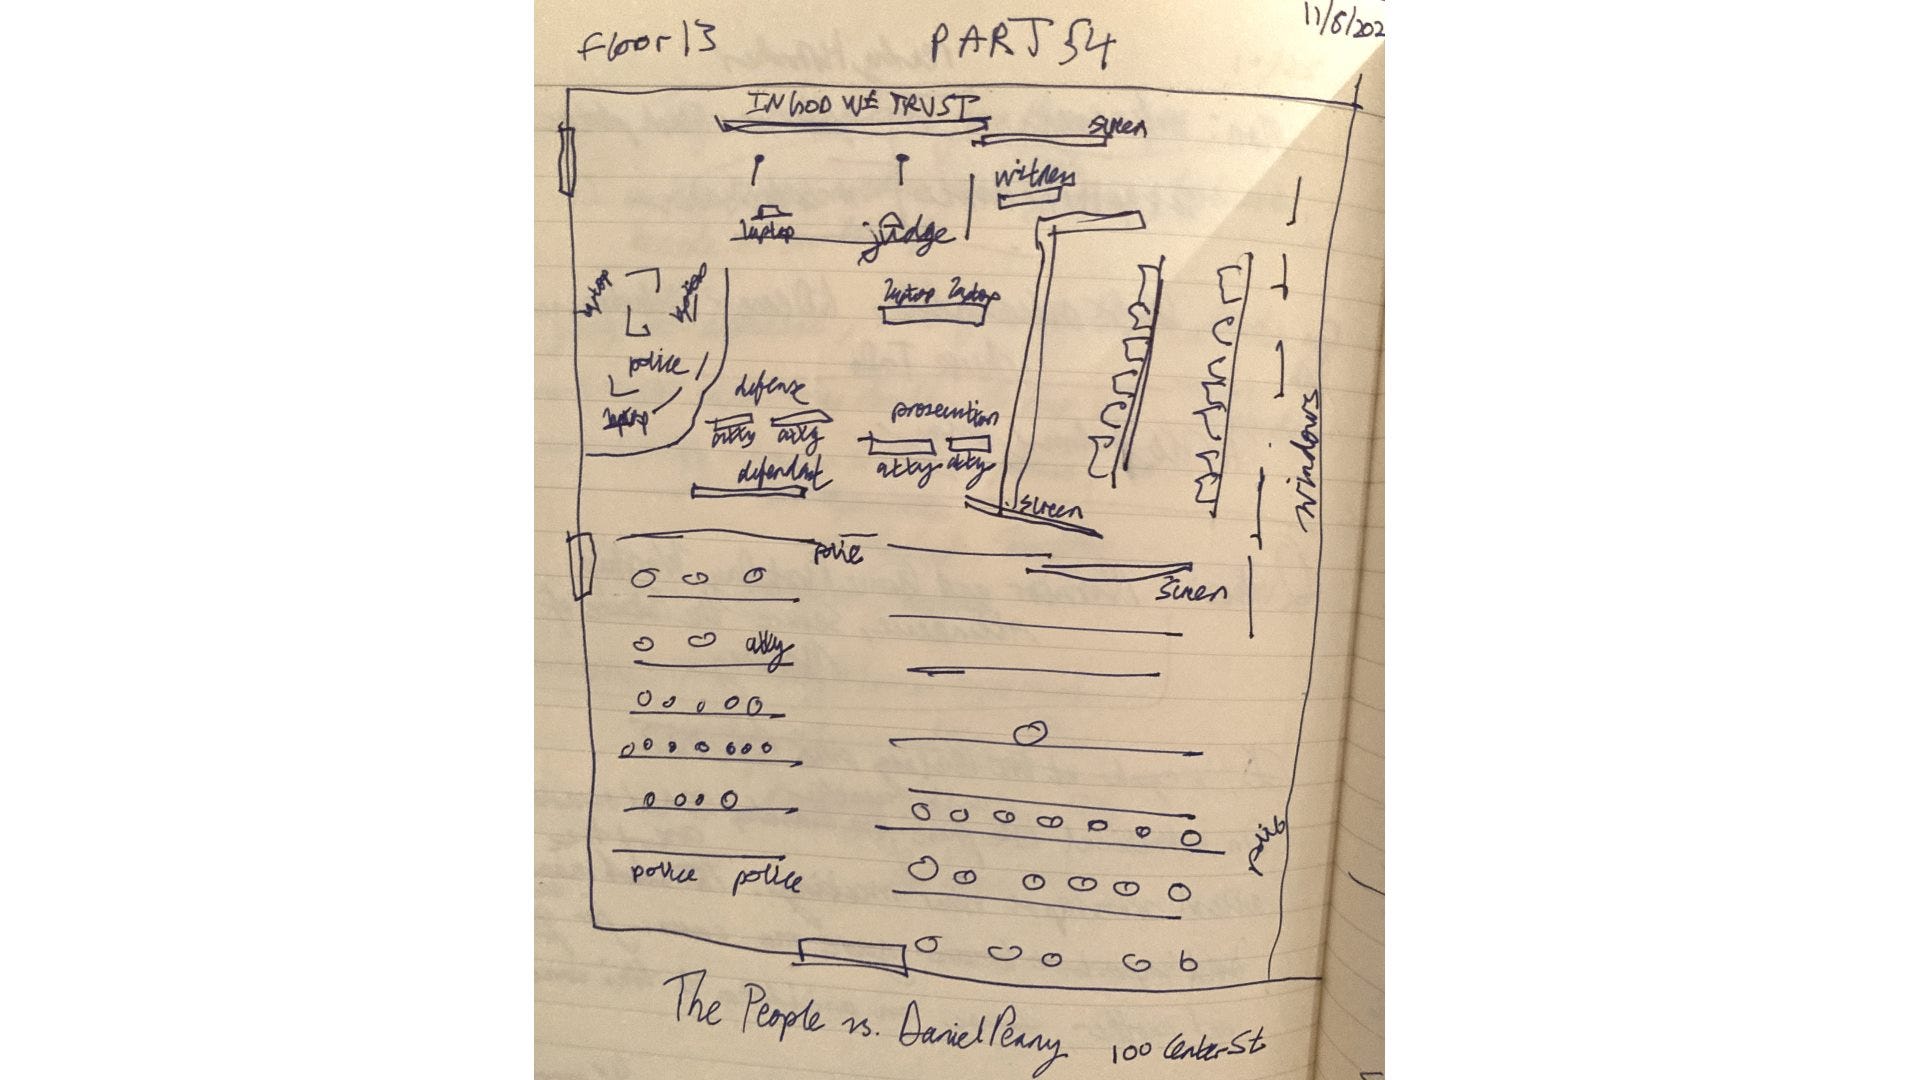 floor 13 PART 54 11/8/202
IN GOD WE TRUST
screen
witness
laptop judge
laptop laptop laptop laptop
police
laptop
defense
prosecution
atty atty
atty atty
defendant
screen
police
screen
atty
windows
police police
police
The People vs. Daniel Penny 100 Center St